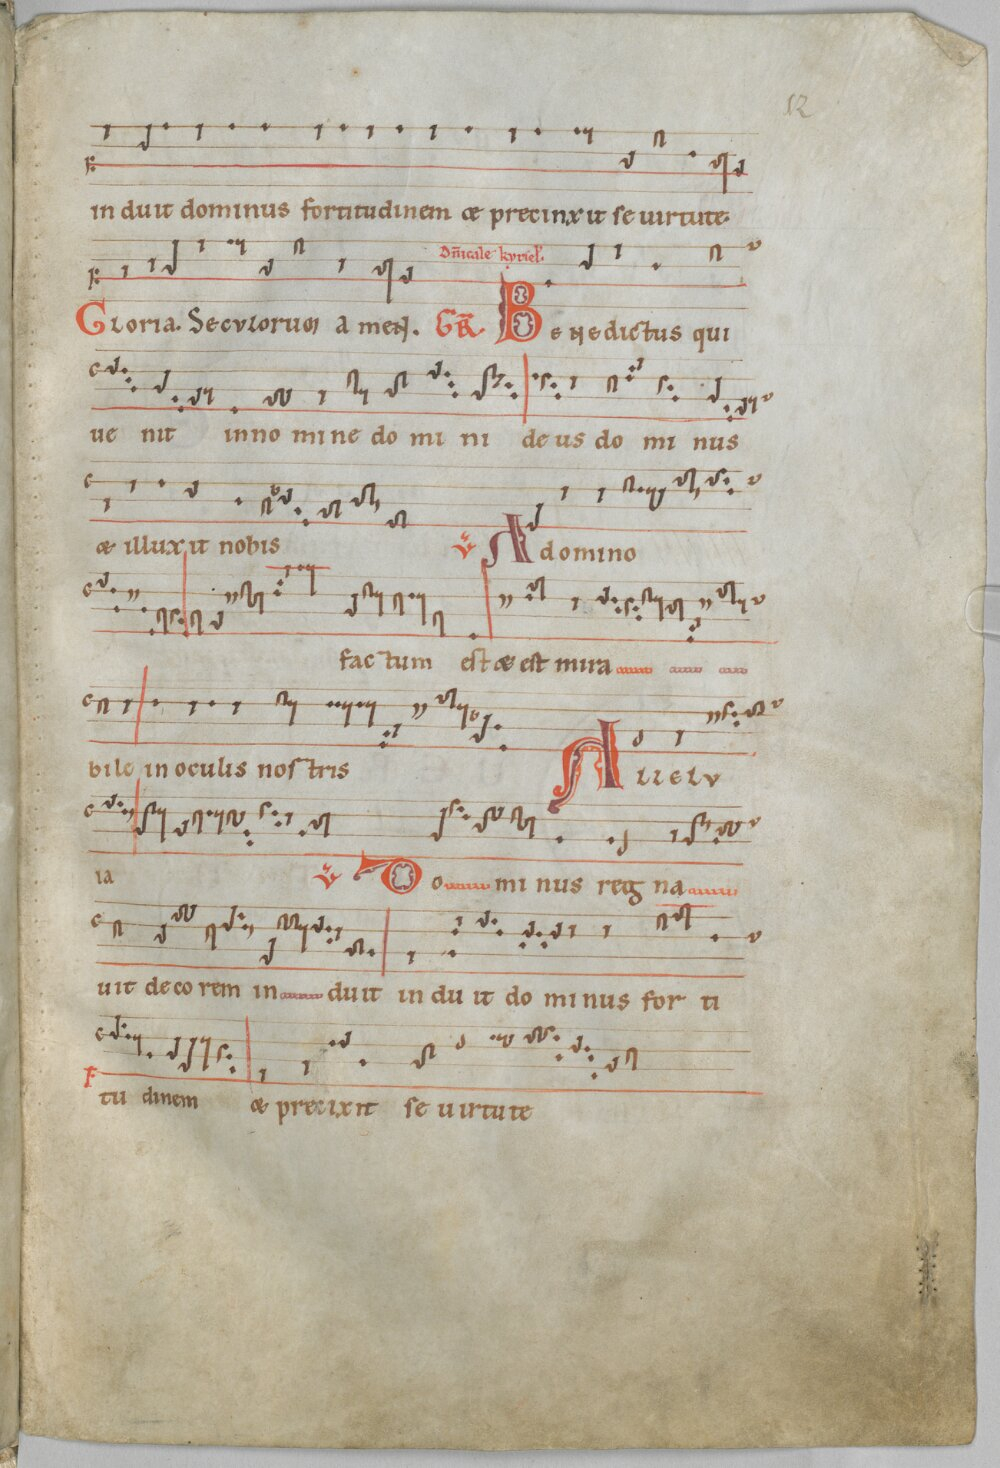 12
in duit dominus fortitudinem & precinxit se uirtute.
Dn̄icale kyriel'.
Gloria. Seculorum amen. GR. Benedictus qui
ue nit in no mi ne do mi ni de us do mi nus
& illuxit nobis V A domino
fac tum est & est mira
bile in oculis nostris A llelu
ia V Do mi nus reg na
uit decorem in duit in du it do mi nus for ti
tu dinem & precixit se uirtute